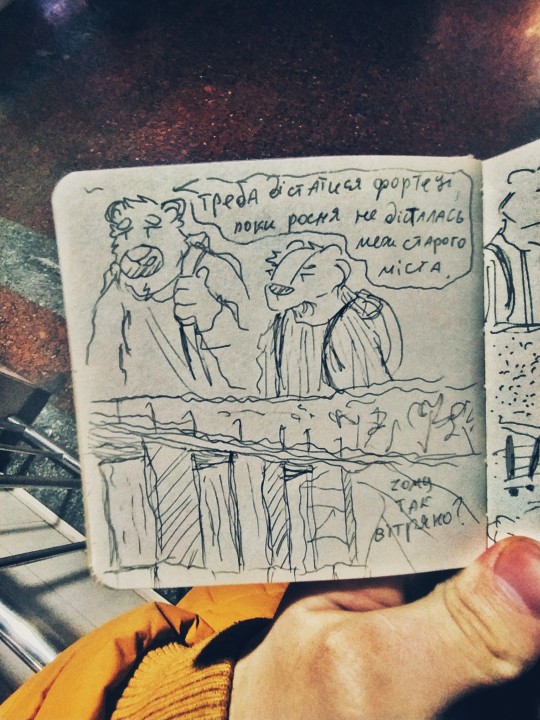 треба дістатися фортеці,
поки росня не дісталась
меж старого
міста.
чому
так
вітряно?